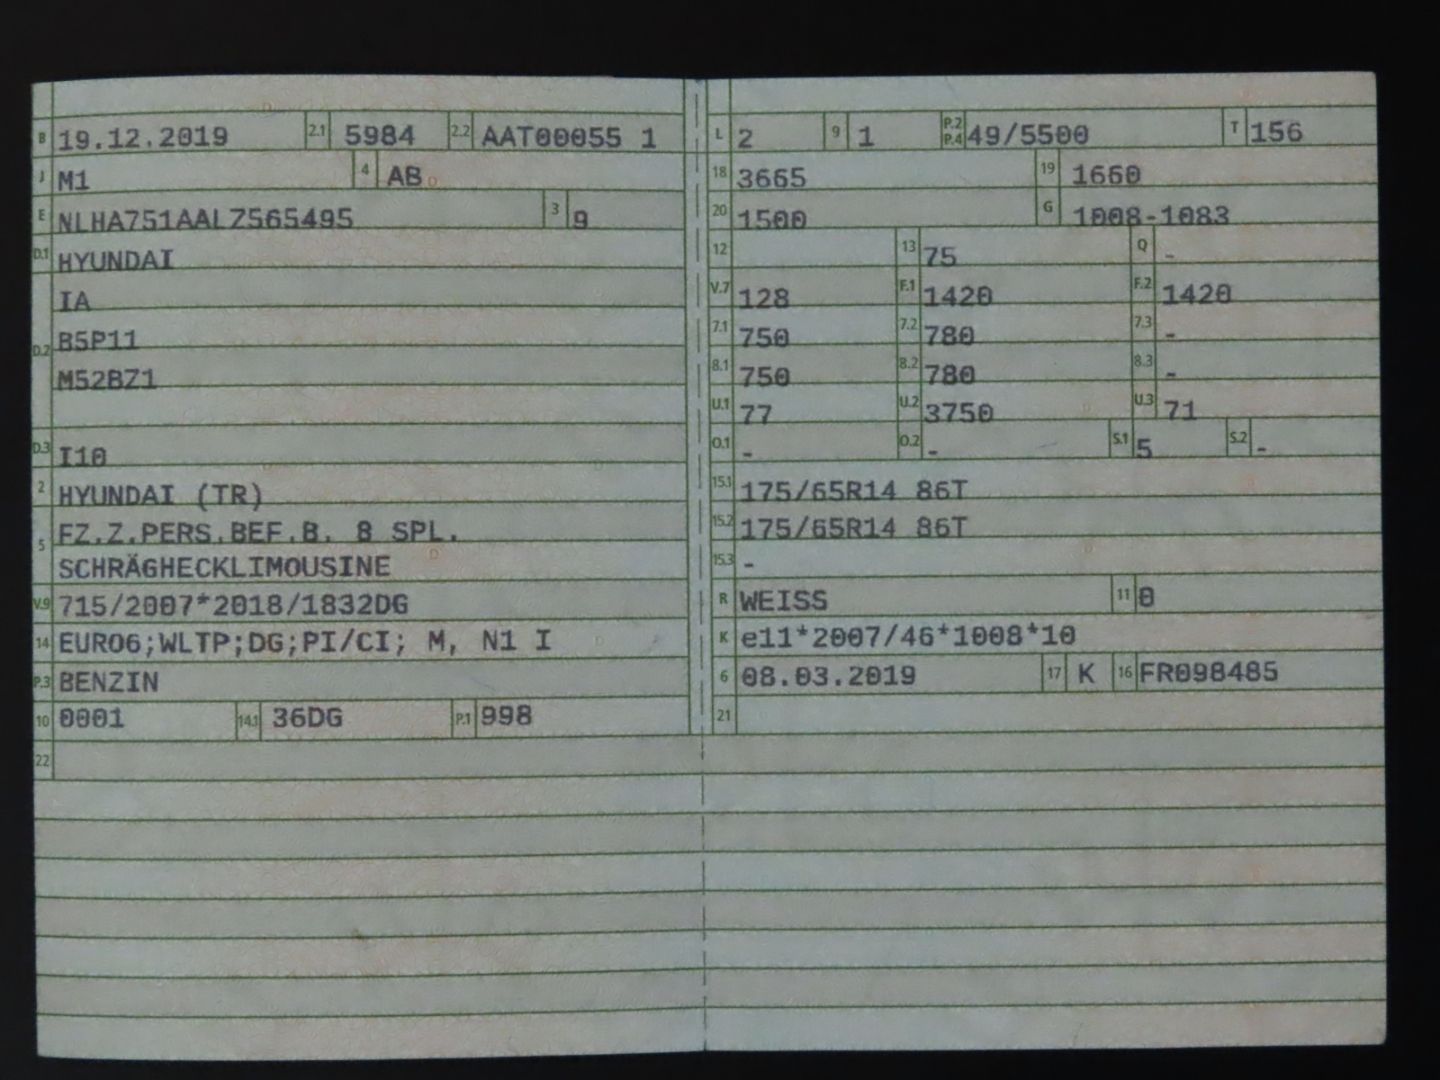 B 19.12.2019 2.1 5984 2.2 AAT00055 1
J M1 4 AB
E NLHA751AALZ565495 3 9
D.1 HYUNDAI
IA
D.2 B5P11
M52BZ1
D.3 I10
2 HYUNDAI (TR)
5 FZ.Z.PERS.BEF.B. 8 SPL.
SCHRÄGHECKLIMOUSINE
V.9 715/2007*2018/1832DG
14 EURO6;WLTP;DG;PI/CI; M, N1 I
P.3 BENZIN
10 0001 14.1 36DG P.1 998
22
L 2 9 1 P.2 P.4 49/5500 T 156
18 3665 19 1660
20 1500 G 1008-1083
12 13 75 Q -
V.7 128 F.1 1420 F.2 1420
7.1 750 7.2 780 7.3 -
8.1 750 8.2 780 8.3 -
U.1 77 U.2 3750 U.3 71
O.1 - O.2 - S.1 5 S.2 -
15.1 175/65R14 86T
15.2 175/65R14 86T
15.3 -
R WEISS 11 0
K e11*2007/46*1008*10
6 08.03.2019 17 K 16 FR098485
21